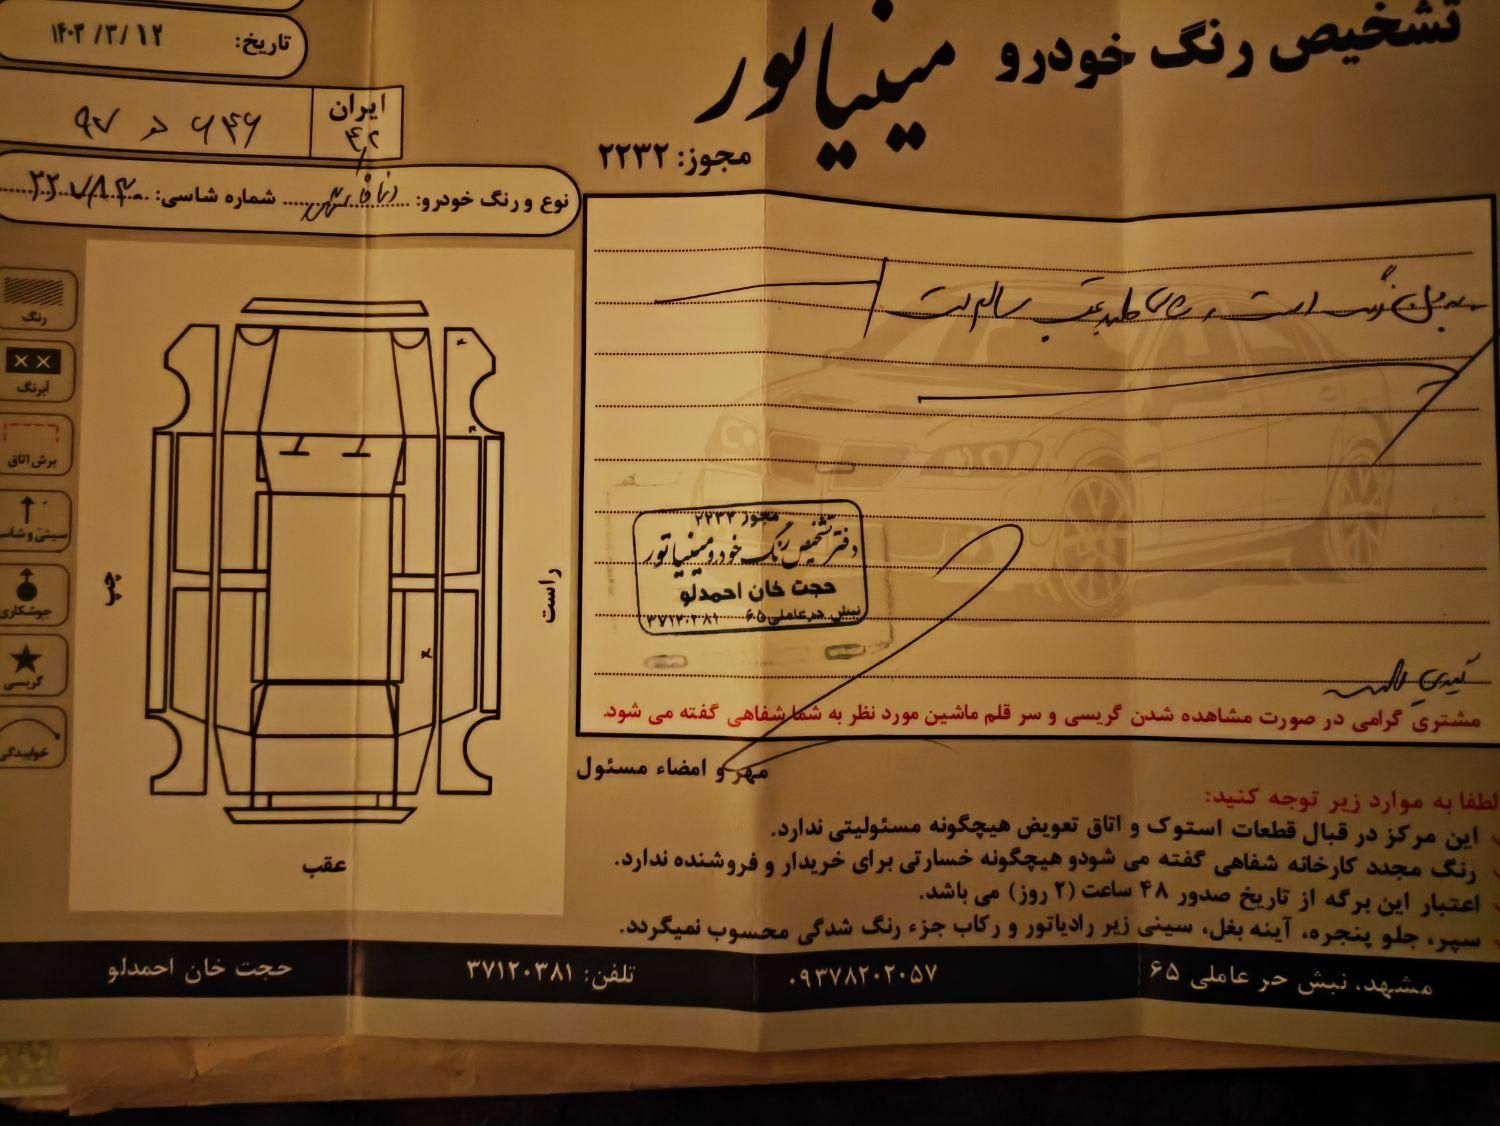 تشخیص رنگ خودرو مینیاتور
مجوز: ۲۲۳۲
تاریخ: ۱۴۰۳/۳/۱۲
ایران
۴۲
۹۷ د ۶۴۶
نوع و رنگ خودرو: شماره شاسی:
رنگ
آبرنگ
برش اتاق
سینی و شاسی
جوشکاری
گریسی
خوابیدگی
چپ
راست
عقب
است و سالم است
مجوز ۲۲۳۲
دفتر تشخیص رنگ خودرو مینیاتور
حجت خان احمدلو
نبش حر عاملی ۶۵ ۳۷۱۲۰۳۸۱
مشتری گرامی در صورت مشاهده شدن گریسی و سر قلم ماشین مورد نظر به شما شفاهی گفته می شود.
مهر و امضاء مسئول
لطفا به موارد زیر توجه کنید:
این مرکز در قبال قطعات استوک و اتاق تعویض هیچگونه مسئولیتی ندارد.
رنگ مجدد کارخانه شفاهی گفته می شودو هیچگونه خسارتی برای خریدار و فروشنده ندارد.
اعتبار این برگه از تاریخ صدور ۴۸ ساعت (۲ روز) می باشد.
سپر، جلو پنجره، آینه بغل، سینی زیر رادیاتور و رکاب جزء رنگ شدگی محسوب نمیگردد.
مشهد، نبش حر عاملی ۶۵ ۰۹۳۷۸۲۰۲۰۵۷ تلفن: ۳۷۱۲۰۳۸۱ حجت خان احمدلو